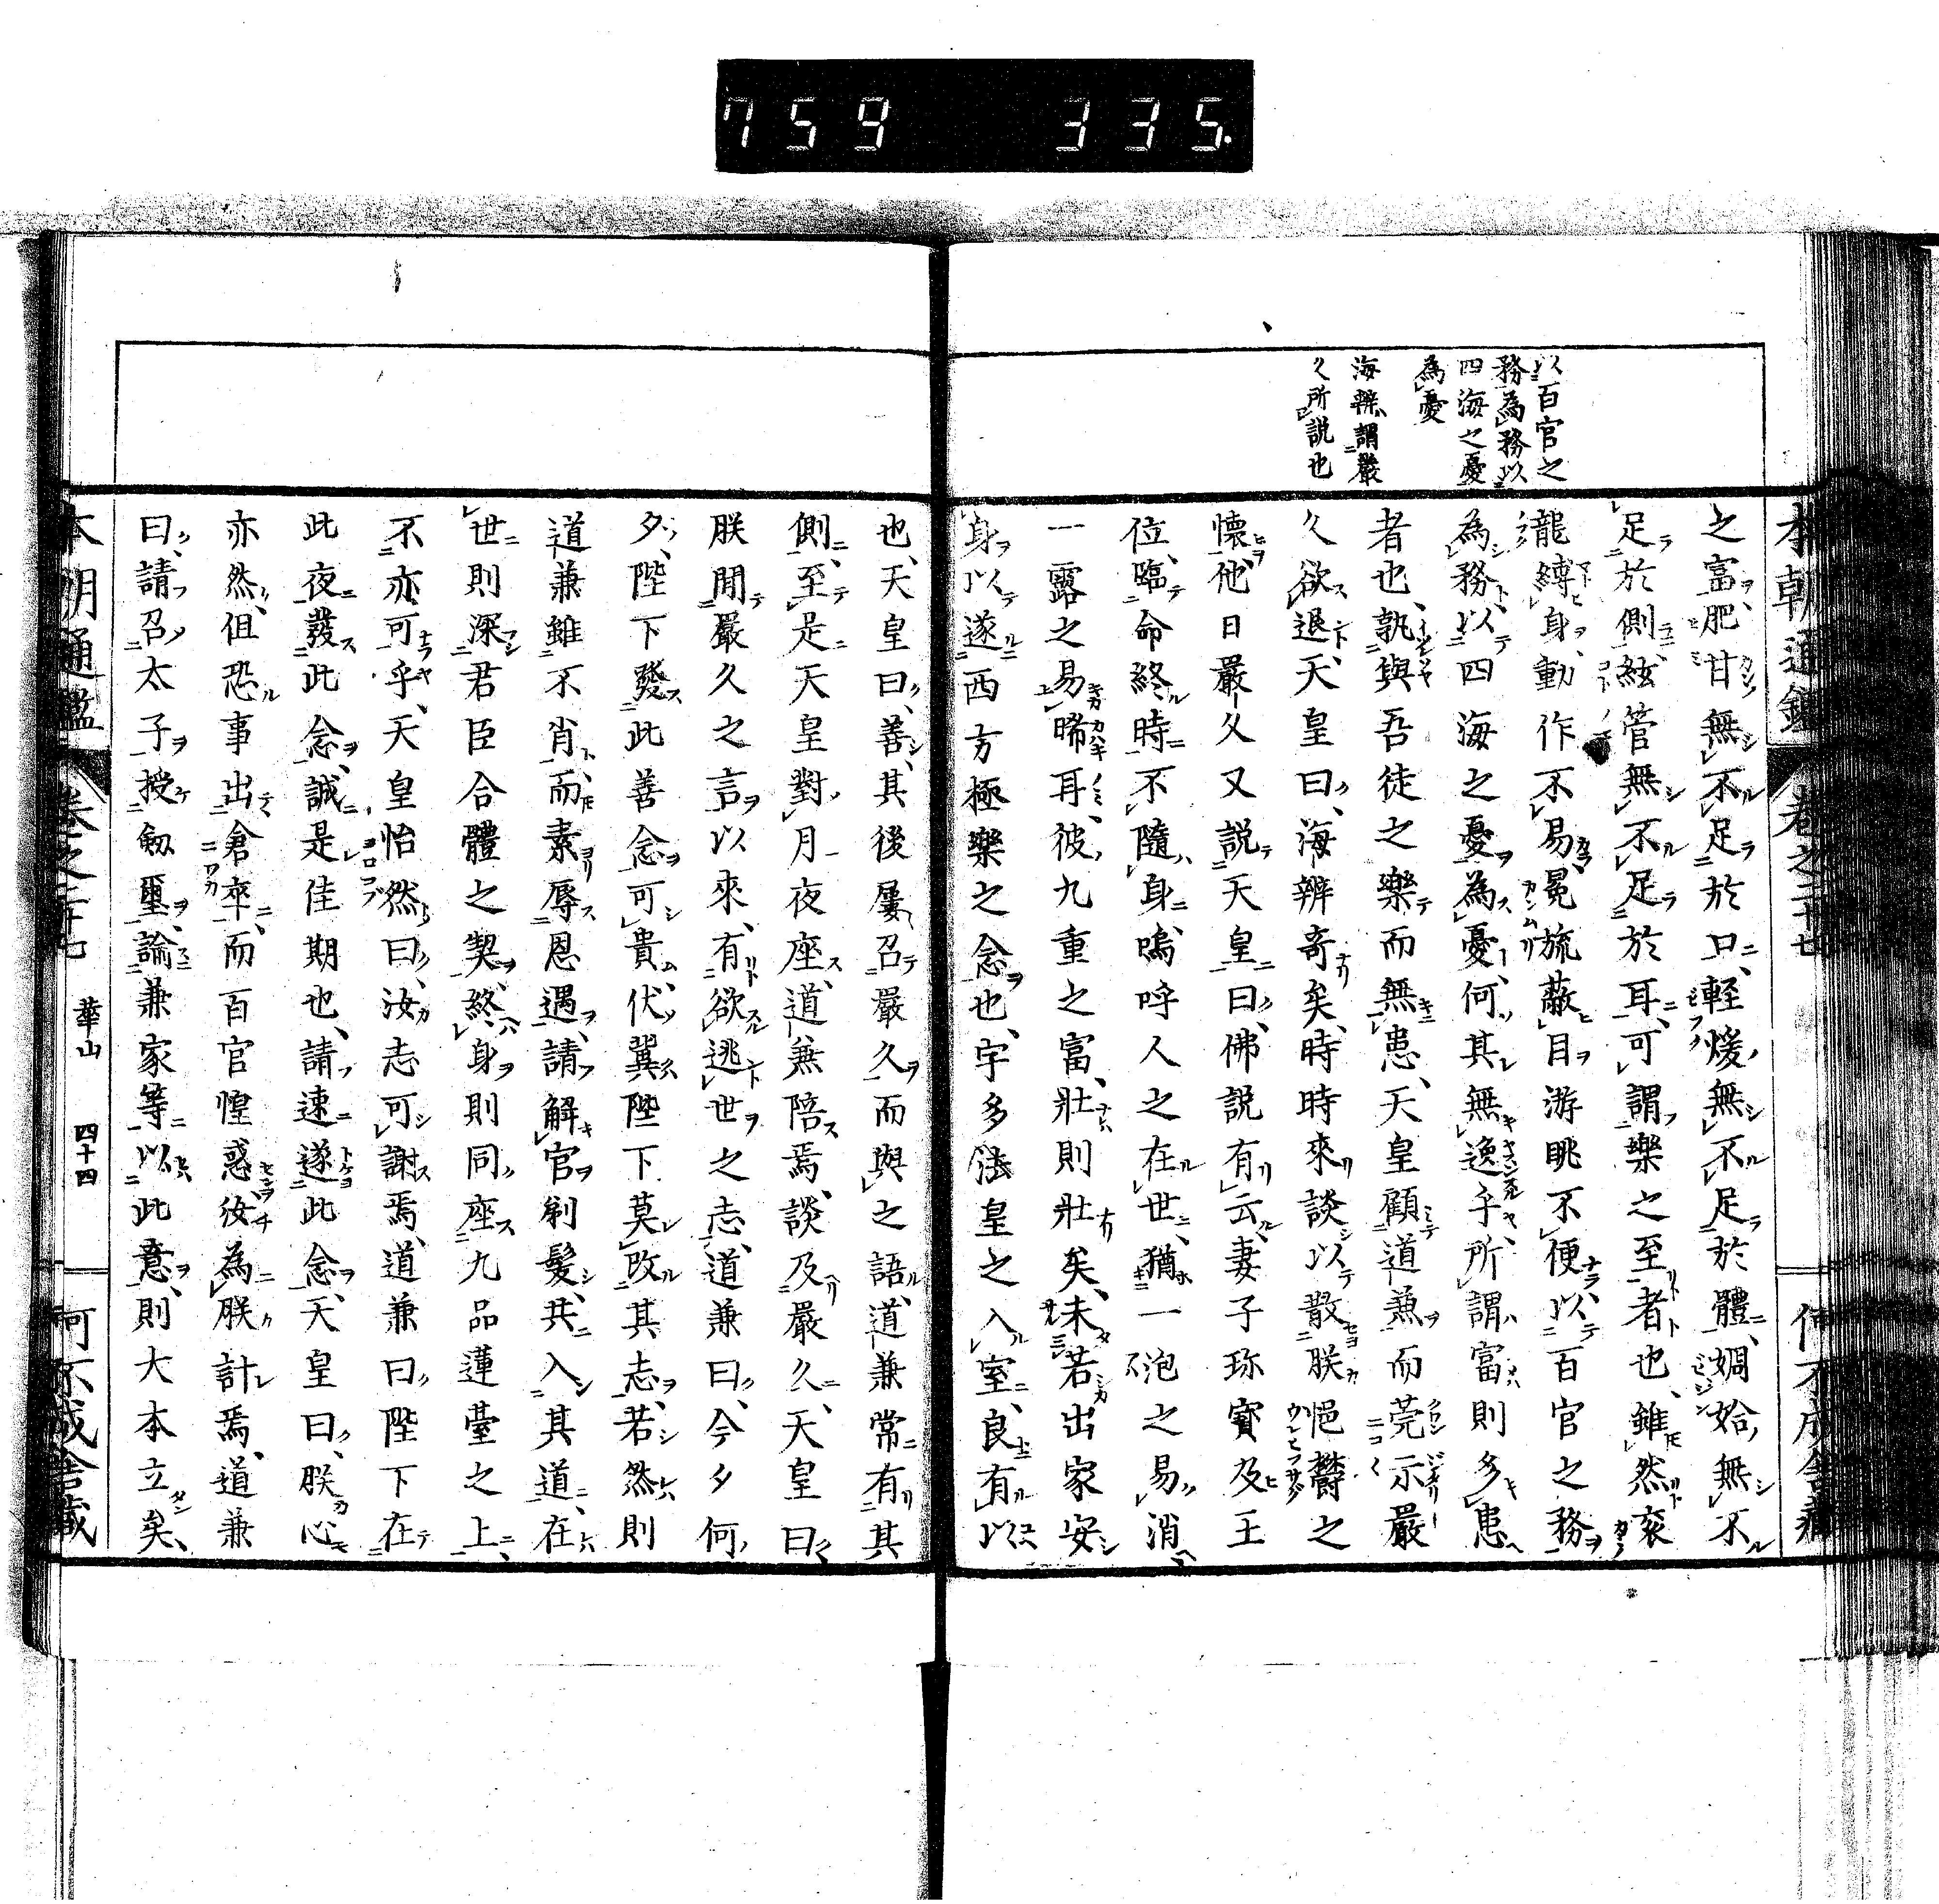 759 335.
本朝通鑑 卷之二十七
以百官之
務為務以
四海之憂
為憂
海辨謂嚴
久所説也
之富、肥甘無不足於口、輕煖無不足於體、嫺始無不
足於側、絃管無不足於耳、可謂樂之至者也、雖然袞
龍縛身、動作不易、冕旒蔽目、游眺不便、以百官之務
為務、以四海之憂為憂、何其無逸乎、所謂富則多患
者也、孰與吾徒之樂而無患、天皇顧道兼而莞示嚴
久欲退、天皇曰、海辨奇矣、時時來談、以散朕悒欝之
懷、他日嚴久又説天皇曰、佛説有云、妻子珍寳及王
位、臨命終時、不隨身、嗚呼人之在世、猶一泡之易消、
一露之易晞耳、彼九重之富、壯則壯矣、未若出家安
身以遂西方極樂之念也、宇多法皇之入室、良有以
也、天皇曰、善、其後屢召嚴久而與之語、道兼常有其
側、至是天皇對月夜座、道兼陪焉、談及嚴久、天皇曰、
朕聞嚴久之言以來、有欲逃世之志、道兼曰、今夕何
夕、陛下發此善念、可貴、伏冀陛下莫改其志、若然則
道兼雖不肖、而素辱恩遇、請解官剃髮、共入其道、在
世則深君臣合體之契、終身則同座九品蓮臺之上、
不亦可乎、天皇怡然曰、汝志可謝焉、道兼曰、陛下在
此夜發此念、誠是佳期也、請速遂此念、天皇曰、朕心
亦然、但恐事出倉卒、而百官惶惑、汝為朕計焉、道兼
曰、請召太子授劔璽、諭兼家等以此意、則大本立矣、
本朝通鑑 卷之二十七 華山 四十四